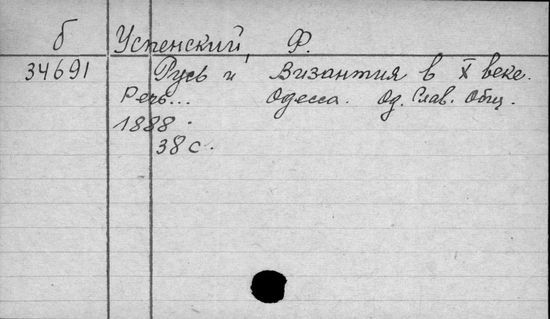 б Успенский, Ф.
34691 Русь и Византия в X веке.
Речь... Одесса. Од. Слав. Общ.
1888.
38 с.